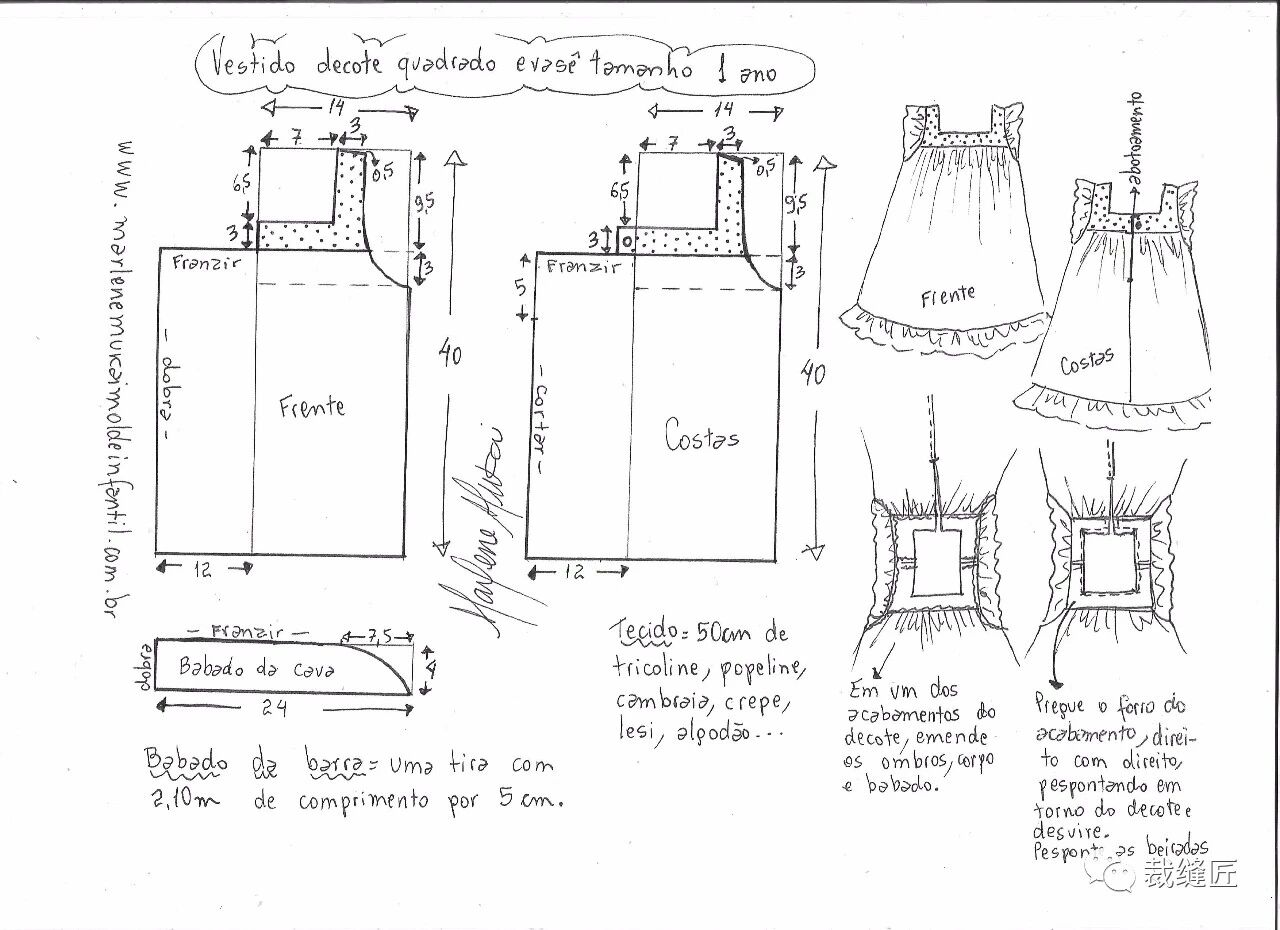 Vestido decote quadrado evasê tamanho 1 ano
www.marlenemukaimoldeinfantil.com.br
14
7
3
0,5
6,5
9,5
3
3
Franzir
- dobra -
Frente
40
12
Marlene Mukai
14
7
3
0,5
6,5
9,5
3
3
Franzir
5
- cortar -
Costas
40
12
abotoamento
Frente
Costas
- Franzir -
7,5
dobra
Babado da cava
4
24
Babado da barra = uma tira com
2,10m de comprimento por 5 cm.
Tecido = 50cm de
tricoline, popeline,
cambraia, crepe,
lesi, algodão...
Em um dos
acabamentos do
decote, emende
os ombros, corpo
e babado.
Pregue o forro do
acabamento, direi-
to com direito,
pespontando em
torno do decote e
desvire.
as beiradas
裁缝匠